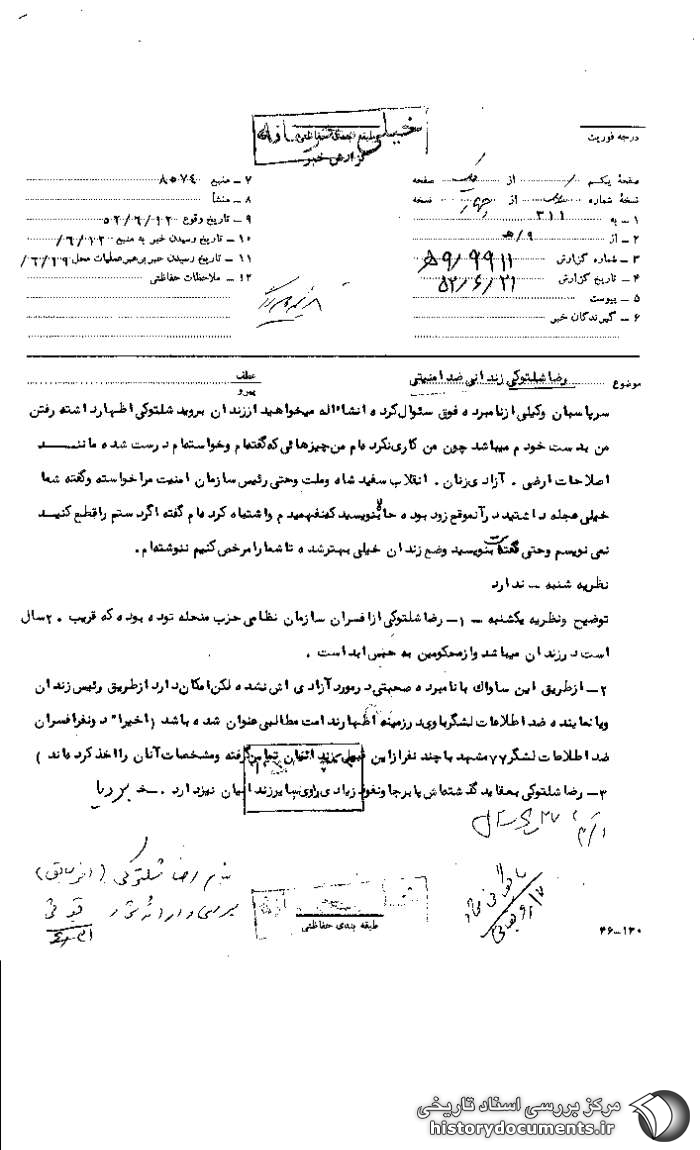 خیلی محرمانه
طبقه بندی حفاظتی
گزارش خبر
درجه فوریت
صفحهٔ یکم از یک صفحه
نسخهٔ شماره از چهار نسخه
۱ ـ به ۳۱۱
۲ ـ از ۹/ه
۳ ـ شماره گزارش ۹۹۱۱/ه۹
۴ ـ تاریخ گزارش ۵۲/۶/۲۱
۵ ـ پیوست
۶ ـ گیرندگان خبر
۷ ـ منبع ۸۵۷۴
۸ ـ منشأ
۹ ـ تاریخ وقوع ۵۲/۶/۱۲
۱۰ ـ تاریخ رسیدن خبر به منبع ۶/۱۲/
۱۱ ـ تاریخ رسیدن خبر برهبر عملیات محل ۶/۱۹/
۱۲ ـ ملاحظات حفاظتی
موضوع رضا شلتوکی زندانی ضد امنیتی
عطف
پیرو
سرپاسبان وکیلی از نامبرده فوق سئوال کرده انشاءاله میخواهید از زندان بروید شلتوکی اظهار داشته رفتن
من بدست خودم میباشد چون من کاری نکرده‌ام من چیزهائی که گفته‌ام و خواسته‌ام درست شده مانند
اصلاحات ارضی . آزادی زنان . انقلاب سفید شاه و ملت وحتی رئیس سازمان امنیت مرا خواسته و گفته شما
خیلی عجله داشتید در آنموقع زود بوده حالا بنویسید که نفهمیدم و اشتباه کرده‌ام گفته اگر دستم را قطع کنید
نمی نویسم وحتی گفته‌است بنویسید وضع زندان خیلی بهتر شده تا شما را مرخص کنیم ننوشته‌ام .
نظریه شنبه ــ ندارد
توضیح ونظریه یکشنبه ــ ۱ــ رضا شلتوکی از افسران سازمان نظامی حزب منحله توده بوده که قریب ۲۰ سال
است در زندان میباشد و از محکومین به حبس ابد است .
۲ــ از طریق این ساواک با نامبرده صحبتی در مورد آزادی اش نشده لکن امکان دارد از طریق رئیس زندان
ویا نماینده ضد اطلاعات لشگر با وی در زمینه اظهار ندامت مطالبی عنوان شده باشد (اخیرا" دونفر افسران
ضد اطلاعات لشگر ۷۷ مشهد با چند نفر از این قبیل زندانیان تماس گرفته ومشخصات آنان را اخذ کرده‌اند )
۳ــ رضا شلتوکی بعقاید گذشته‌اش پا برجا ونفوذ زیادی روی سایر زندانیان نیز دارد .
رضا شلتوکی
طبقه بندی حفاظتی
۴۶ــ۱۲۰
مرکز بررسی اسناد تاریخی
historydocuments.ir